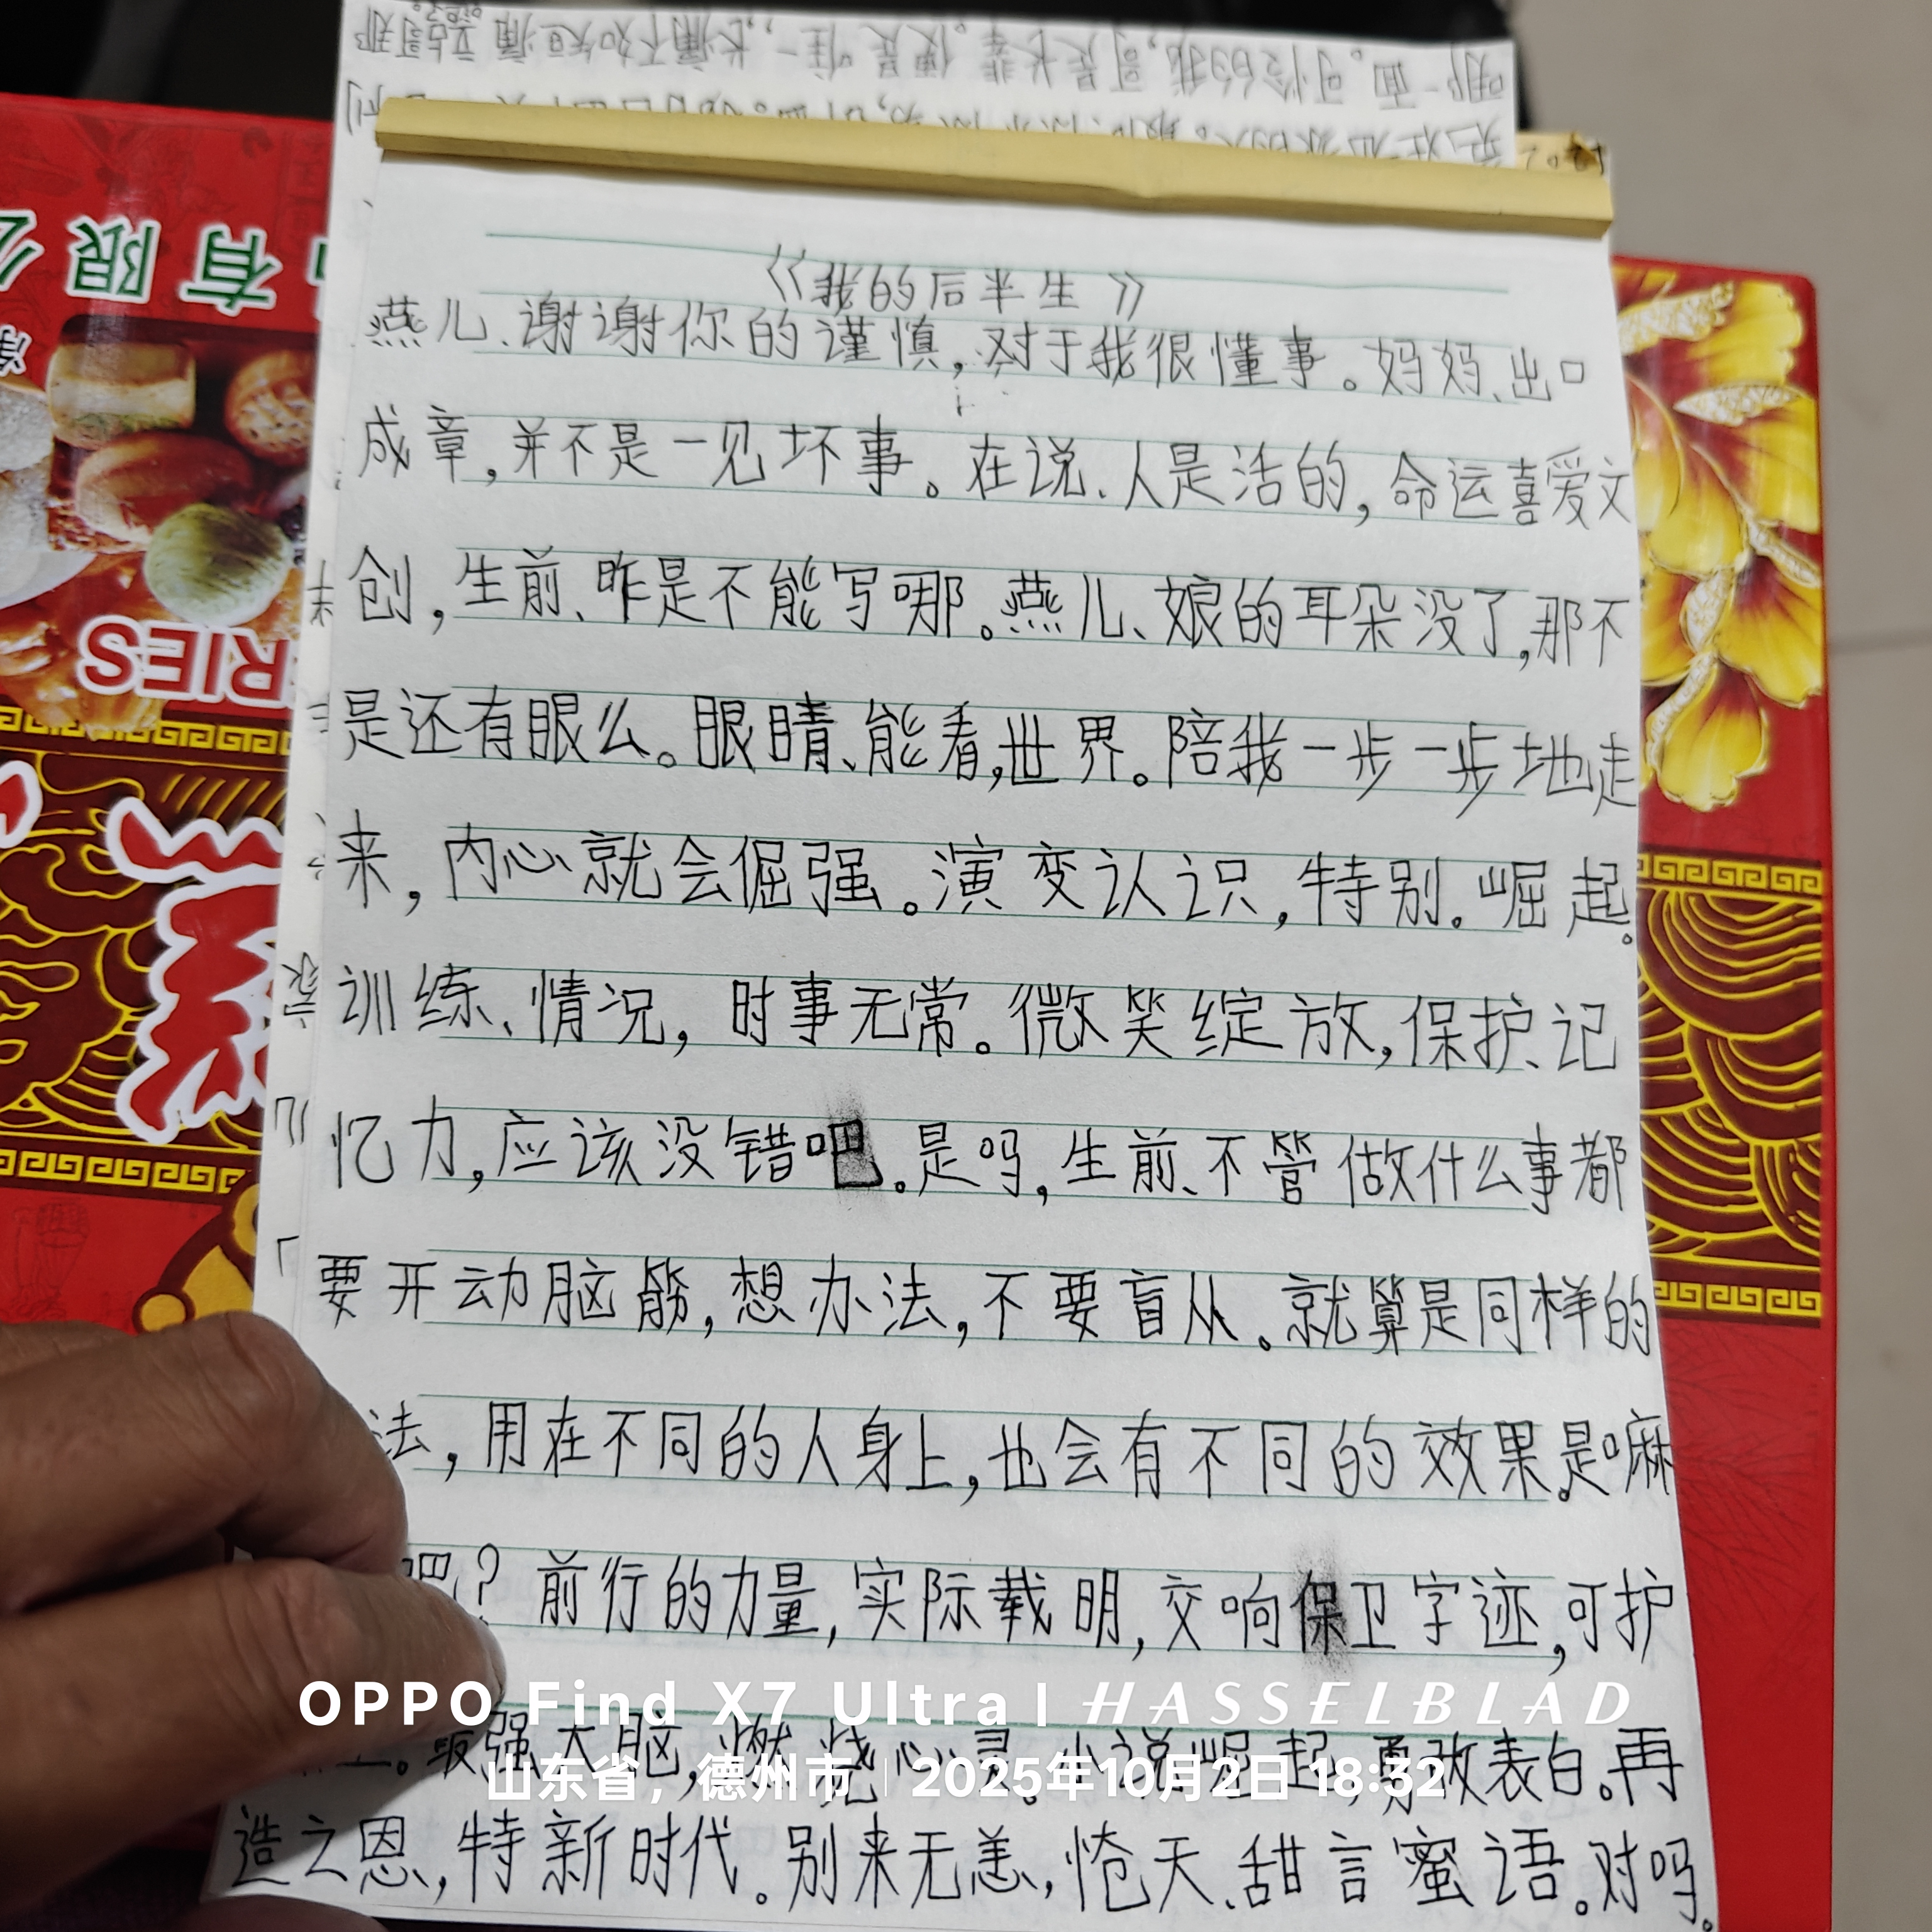 《我的后半生》
燕儿、谢谢你的谨慎，对于我很懂事。妈妈、出口
成章，并不是一见坏事。在说、人是活的，命运喜爱文
创，生前、昨是不能写哪。燕儿、娘的耳朵没了，那不
是还有眼么。眼睛、能看，世界。陪我一步一步地走
来，内心就会倔强。演变认识，特别。崛起。
训练、情况，时事无常。微笑绽放，保护、记
忆力，应该没错吧。是吗，生前、不管做什么事都
要开动脑筋，想办法，不要盲从。就算是同样的
法，用在不同的人身上，也会有不同的效果。是嘛
吧？前行的力量，实际载明，交响保卫字迹，可护
。最强大脑，燃烧心灵。小说崛起，勇敢表白。再
造之恩，特新时代。别来无恙，怆天、甜言蜜语。对吗。
有限公
RIES
OPPO Find X7 Ultra | HASSELBLAD
山东省，德州市 | 2025年10月2日 18:32